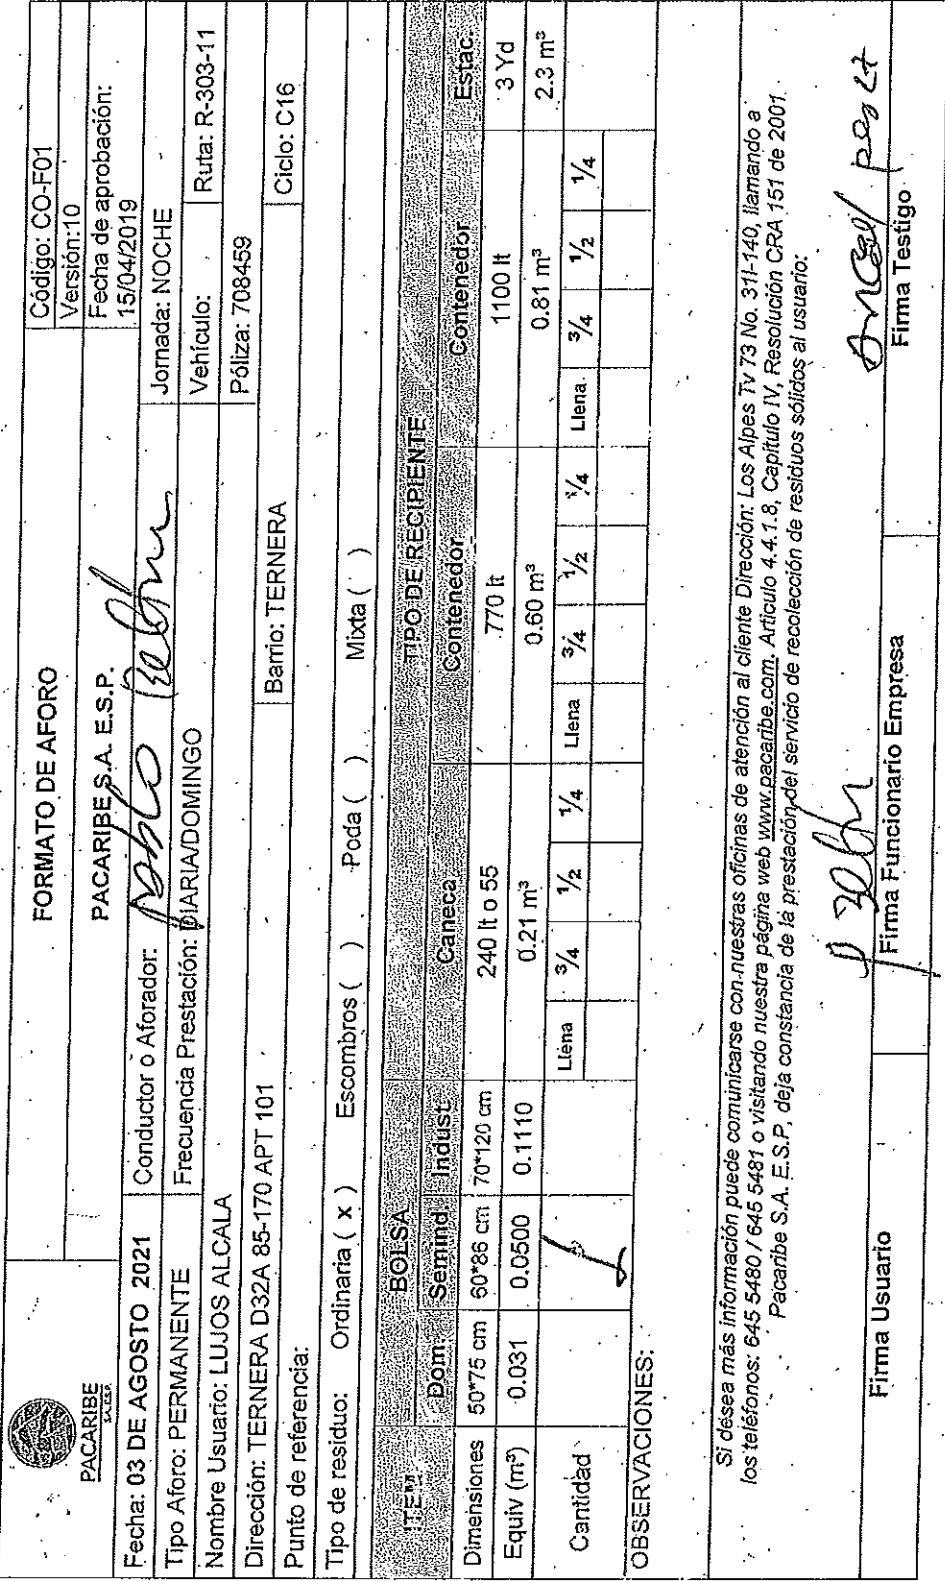 PACARIBE
S.A. E.S.P.
FORMATO DE AFORO
PACARIBE S.A. E.S.P.
Código: CO-F01
Versión:10
Fecha de aprobación:
15/04/2019
Fecha: 03 DE AGOSTO 2021 Conductor o Aforador: Pablo Jornada: NOCHE
Tipo Aforo: PERMANENTE Frecuencia Prestación: DIARIA/DOMINGO Vehículo: Ruta: R-303-11
Nombre Usuario: LUJOS ALCALA Póliza: 708459
Dirección: TERNERA D32A 85-170 APT 101 Barrio: TERNERA Ciclo: C16
Punto de referencia:
Tipo de residuo: Ordinaria ( x ) Escombros ( ) Poda ( ) Mixta ( )
ITEM BOLSA TIPO DE RECIPIENTE
Dom. Semind. Indust. Caneca Contenedor Contenedor Estac.
Dimensiones 50*75 cm 60*86 cm 70*120 cm 240 lt o 55 770 lt 1100 lt 3 Yd
Equiv (m³) 0.031 0.0500 0.1110 0.21 m³ 0.60 m³ 0.81 m³ 2.3 m³
Cantidad 1 Llena 3/4 1/2 1/4 Llena 3/4 1/2 1/4 Llena 3/4 1/2 1/4
OBSERVACIONES:
Si desea más información puede comunicarse con nuestras oficinas de atención al cliente Dirección: Los Alpes Tv 73 No. 31I-140, llamando a
los teléfonos: 645 5480 / 645 5481 o visitando nuestra página web www.pacaribe.com. Articulo 4.4.1.8, Capitulo IV, Resolución CRA 151 de 2001.
Pacaribe S.A. E.S.P, deja constancia de la prestación del servicio de recolección de residuos sólidos al usuario:
Firma Usuario Firma Funcionario Empresa Firma Testigo